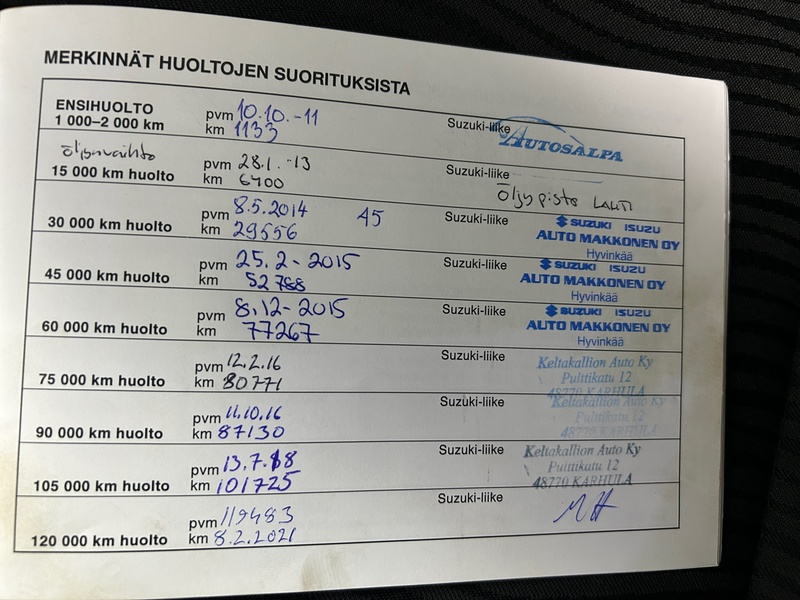 MERKINNÄT HUOLTOJEN SUORITUKSISTA
ENSIHUOLTO
1 000–2 000 km
pvm 10.10.-11
km 1133
Suzuki-liike
AUTOSALPA
öljynvaihto
15 000 km huolto
pvm 28.1.-13
km 6400
Suzuki-liike
Öljypiste LAHTI
30 000 km huolto
pvm 8.5.2014 45
km 29556
Suzuki-liike
SUZUKI ISUZU
AUTO MAKKONEN OY
Hyvinkää
45 000 km huolto
pvm 25.2-2015
km 52788
Suzuki-liike
SUZUKI ISUZU
AUTO MAKKONEN OY
Hyvinkää
60 000 km huolto
pvm 8.12-2015
km 77267
Suzuki-liike
SUZUKI ISUZU
AUTO MAKKONEN OY
Hyvinkää
75 000 km huolto
pvm 12.2.16
km 80771
Suzuki-liike
Keltakallion Auto Ky
Pulttikatu 12
48770 KARHULA
90 000 km huolto
pvm 11.10.16
km 87130
Suzuki-liike
Keltakallion Auto Ky
Pulttikatu 12
48770 KARHULA
105 000 km huolto
pvm 13.7.18
km 101725
Suzuki-liike
Keltakallion Auto Ky
Pulttikatu 12
48770 KARHULA
120 000 km huolto
pvm 119483
km 8.2.2021
Suzuki-liike